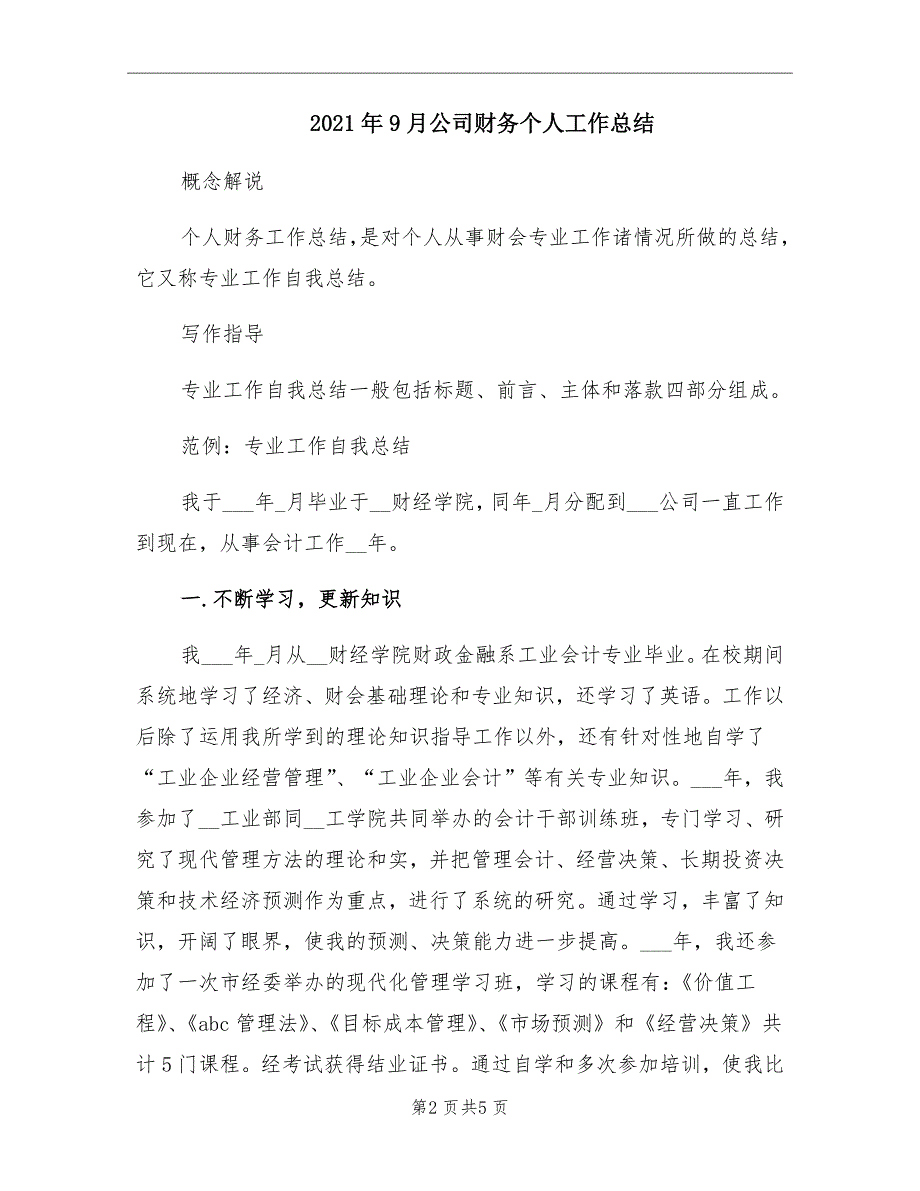 2021 年 9 月公司财务个人工作总结
概念解说
个人财务工作总结，是对个人从事财会专业工作诸情况所做的总结，
它又称专业工作自我总结。
写作指导
专业工作自我总结一般包括标题、前言、主体和落款四部分组成。
范例：专业工作自我总结
我于___年_月毕业于__财经学院，同年_月分配到___公司一直工作
到现在，从事会计工作__年。
一.不断学习，更新知识
我___年_月从__财经学院财政金融系工业会计专业毕业。在校期间
系统地学习了经济、财会基础理论和专业知识，还学习了英语。工作以
后除了运用我所学到的理论知识指导工作以外，还有针对性地自学了
“工业企业经营管理”、“工业企业会计”等有关专业知识。___年，我
参加了__工业部同__工学院共同举办的会计干部训练班，专门学习、研
究了现代管理方法的理论和实，并把管理会计、经营决策、长期投资决
策和技术经济预测作为重点，进行了系统的研究。通过学习，丰富了知
识，开阔了眼界，使我的预测、决策能力进一步提高。___年，我还参
加了一次市经委举办的现代化管理学习班，学习的课程有：《价值工
程》、《abc 管理法》、《目标成本管理》、《市场预测》和《经营决策》共
计 5 门课程。经考试获得结业证书。通过自学和多次参加培训，使我比
第2 页共5 页